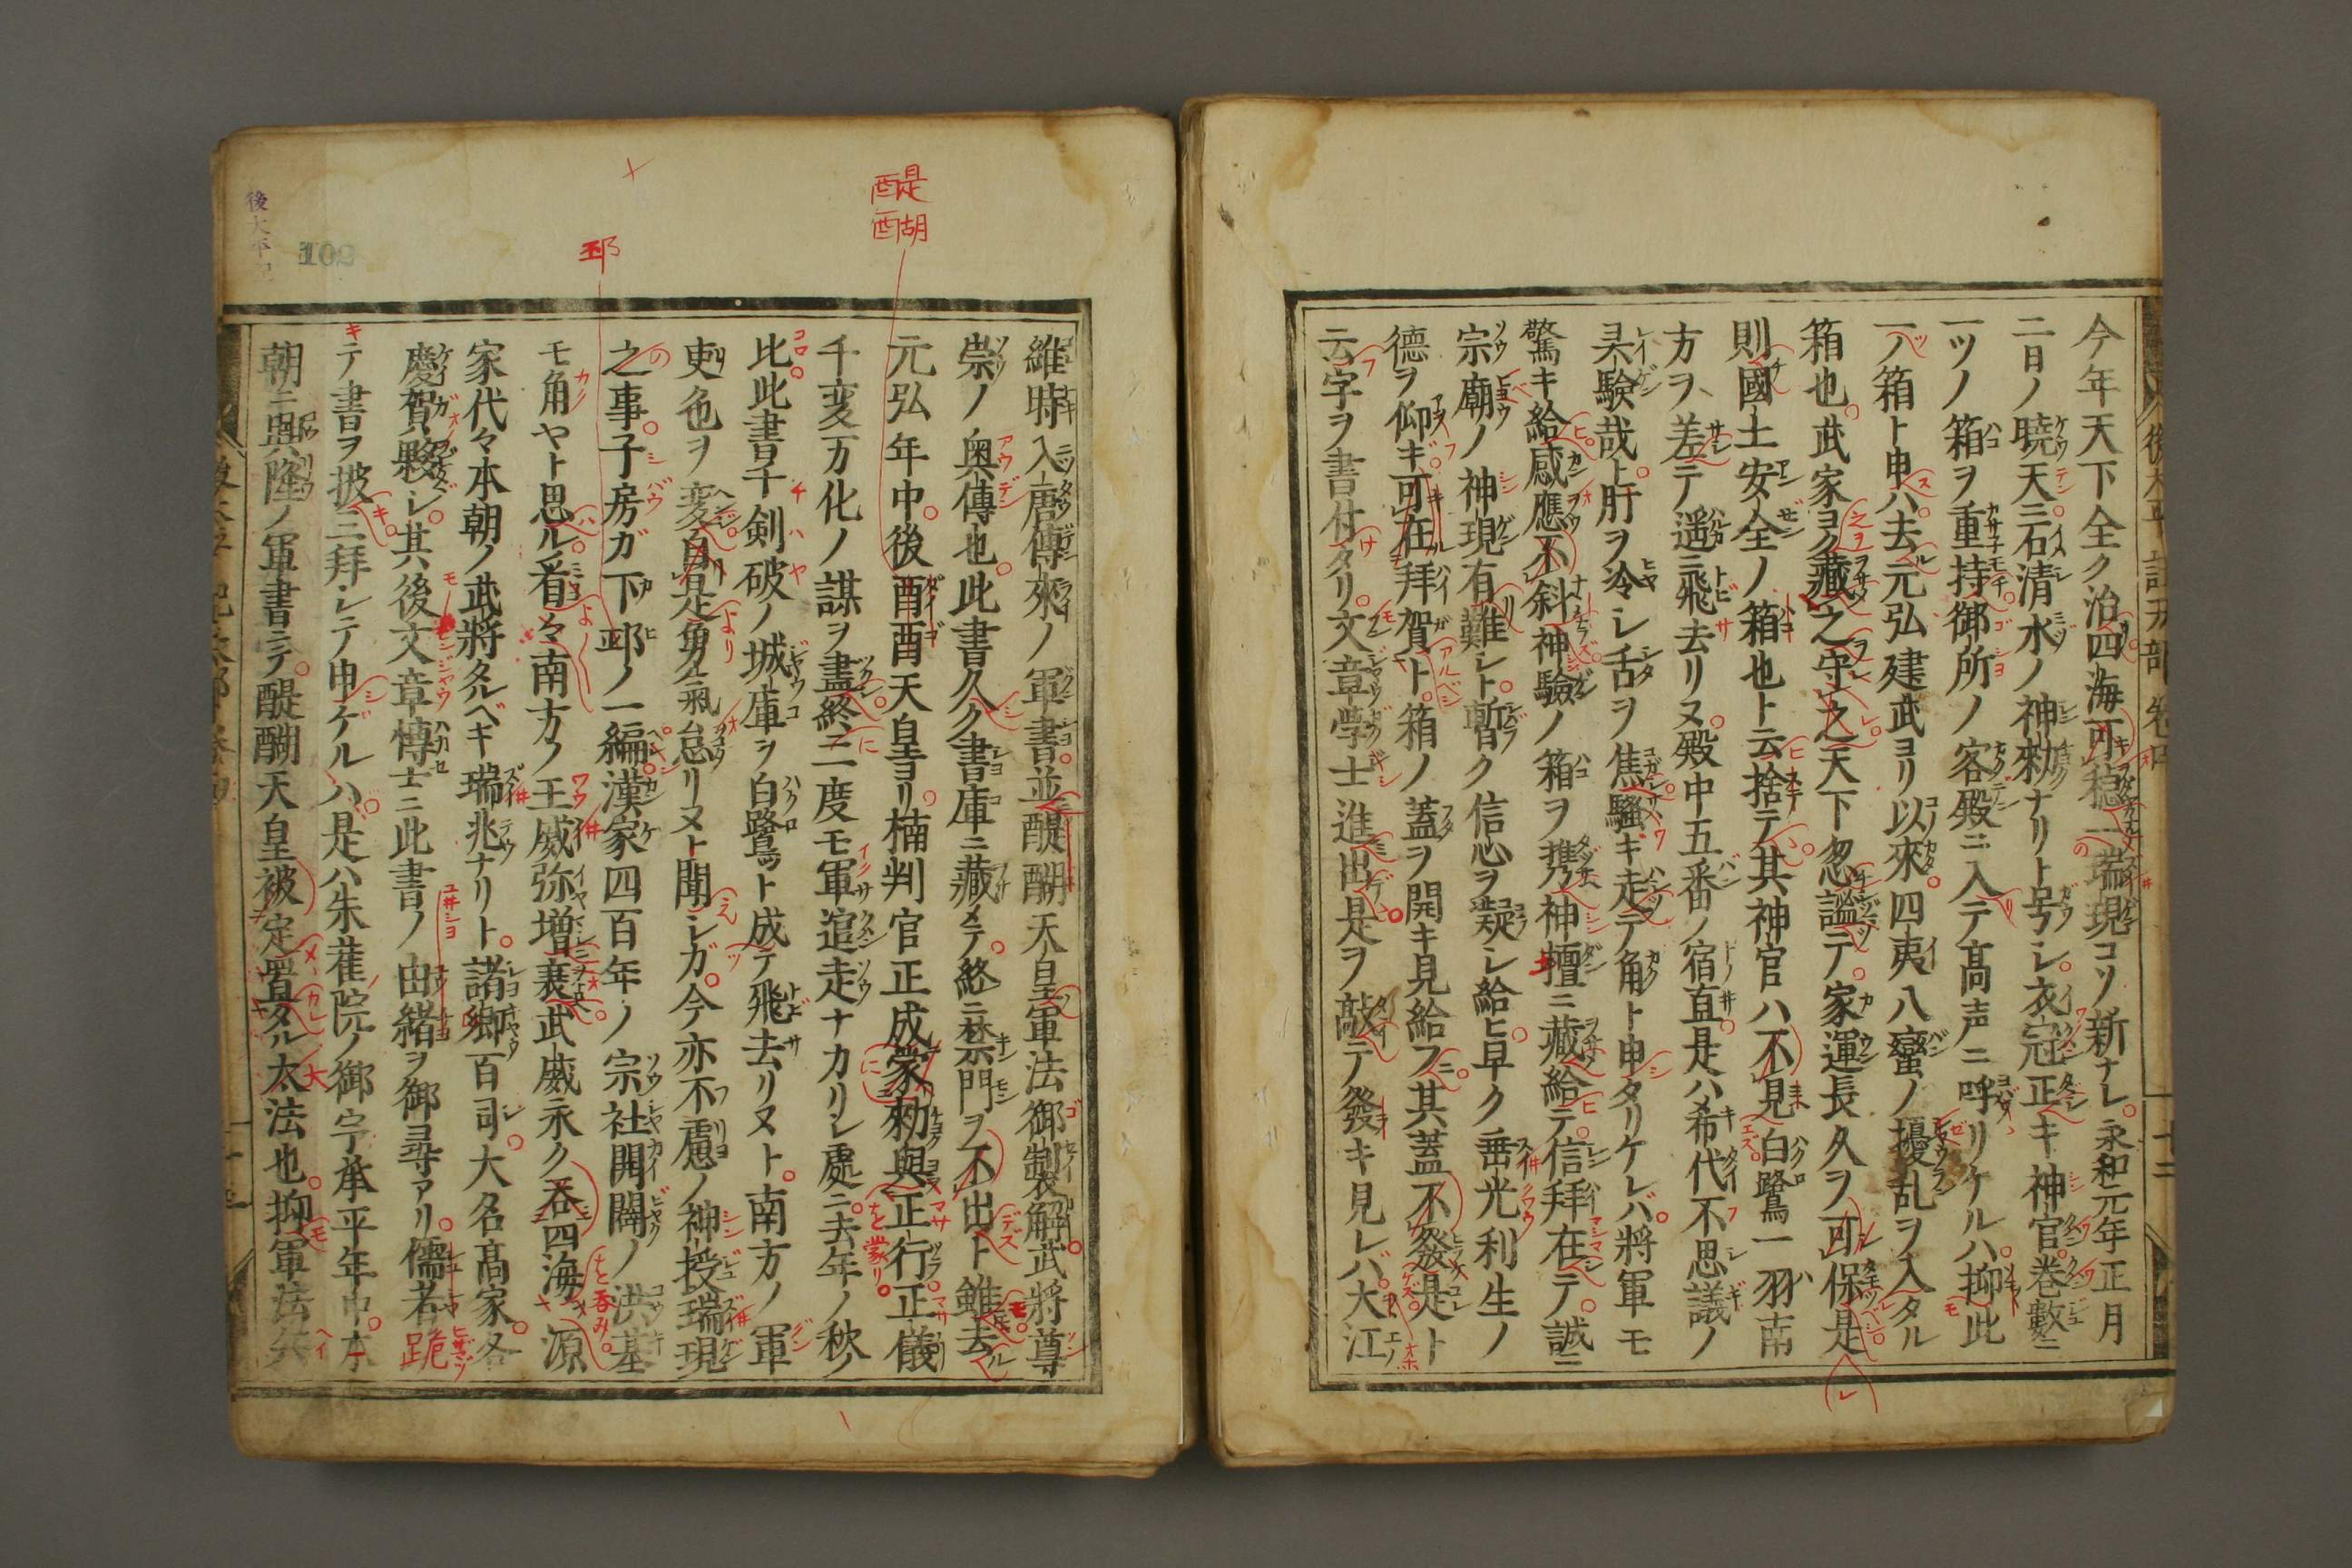 今年天下全ク治四海可穏一瑞現コソ新ナレ永和元年正月
二日ノ暁天ニ石清水ノ神勅ナリト号シ衣冠正キ神官巻數ニ
一ツノ箱ヲ重持御所ノ客殿ニ入テ髙声ニ呼リケルハ抑此
一ノ箱ト申ハ去元弘建武ヨリ以來四夷八蠻ノ擾乱ヲ入タル
箱也武家ヨク藏之守之天下忽謐テ家運長久ヲ可保是
則國土安全ノ箱也ト云捨テ其神官ハ不見白鷺一羽南
方ヲ差テ遥ニ飛去リヌ殿中五番ノ宿直是ハ希代不思議ノ
灵驗哉ト肝ヲ冷シ舌ヲ焦騒キ走テ角ト申タリケレバ將軍モ
驚キ給感應不斜神驗ノ箱ヲ携神壇ニ藏給テ信拜在テ誠ニ
宗廟ノ神現有難シト暫ク信心ヲ凝シ給ヒ早ク垂光利生ノ
德ヲ仰キ可在拜賀ト箱ノ蓋ヲ開キ見給フ其蓋不發是ト
云字ヲ書付タリ文章學士進出是ヲ敲テ發キ見レバ大江
維時入唐傳來ノ軍書並醍醐天皇軍法御製解武將尊
崇ノ奥傳也此書久ク書庫ニ藏メテ終ニ禁門ヲ不出ト雖去
元弘年中後酉酉天皇ヨリ楠判官正成蒙勅與正行正儀
千変万化ノ謀ヲ盡終ニ一度モ軍追走ナカリシ處ニ去年ノ秋ノ
比此書千剣破ノ城庫ヲ白鷺ト成テ飛去リヌト南方ノ軍
吏色ヲ変自是勇氣怠リヌト聞シガ今亦不慮ノ神授瑞現
之事子房ガ下邳ノ一編漢家四百年ノ宗社開闢ノ洪基
モ角ヤト思ル看々南方ノ王威弥増衰武威永ク呑四海源
家代々本朝ノ武將タルベキ瑞兆ナリト諸卿百司大名髙家各
慶賀夥シ其後文章博士ニ此書ノ由緒ヲ御尋アリ儒者跪
テ書ヲ披三拜シテ申ゲルハ是ハ朱雀院ノ御宇承平年中本
朝ニ興隆ノ軍書ニテ醍醐天皇被定置タル太法也抑軍法兵
醍
醐
邳
後太平記
102